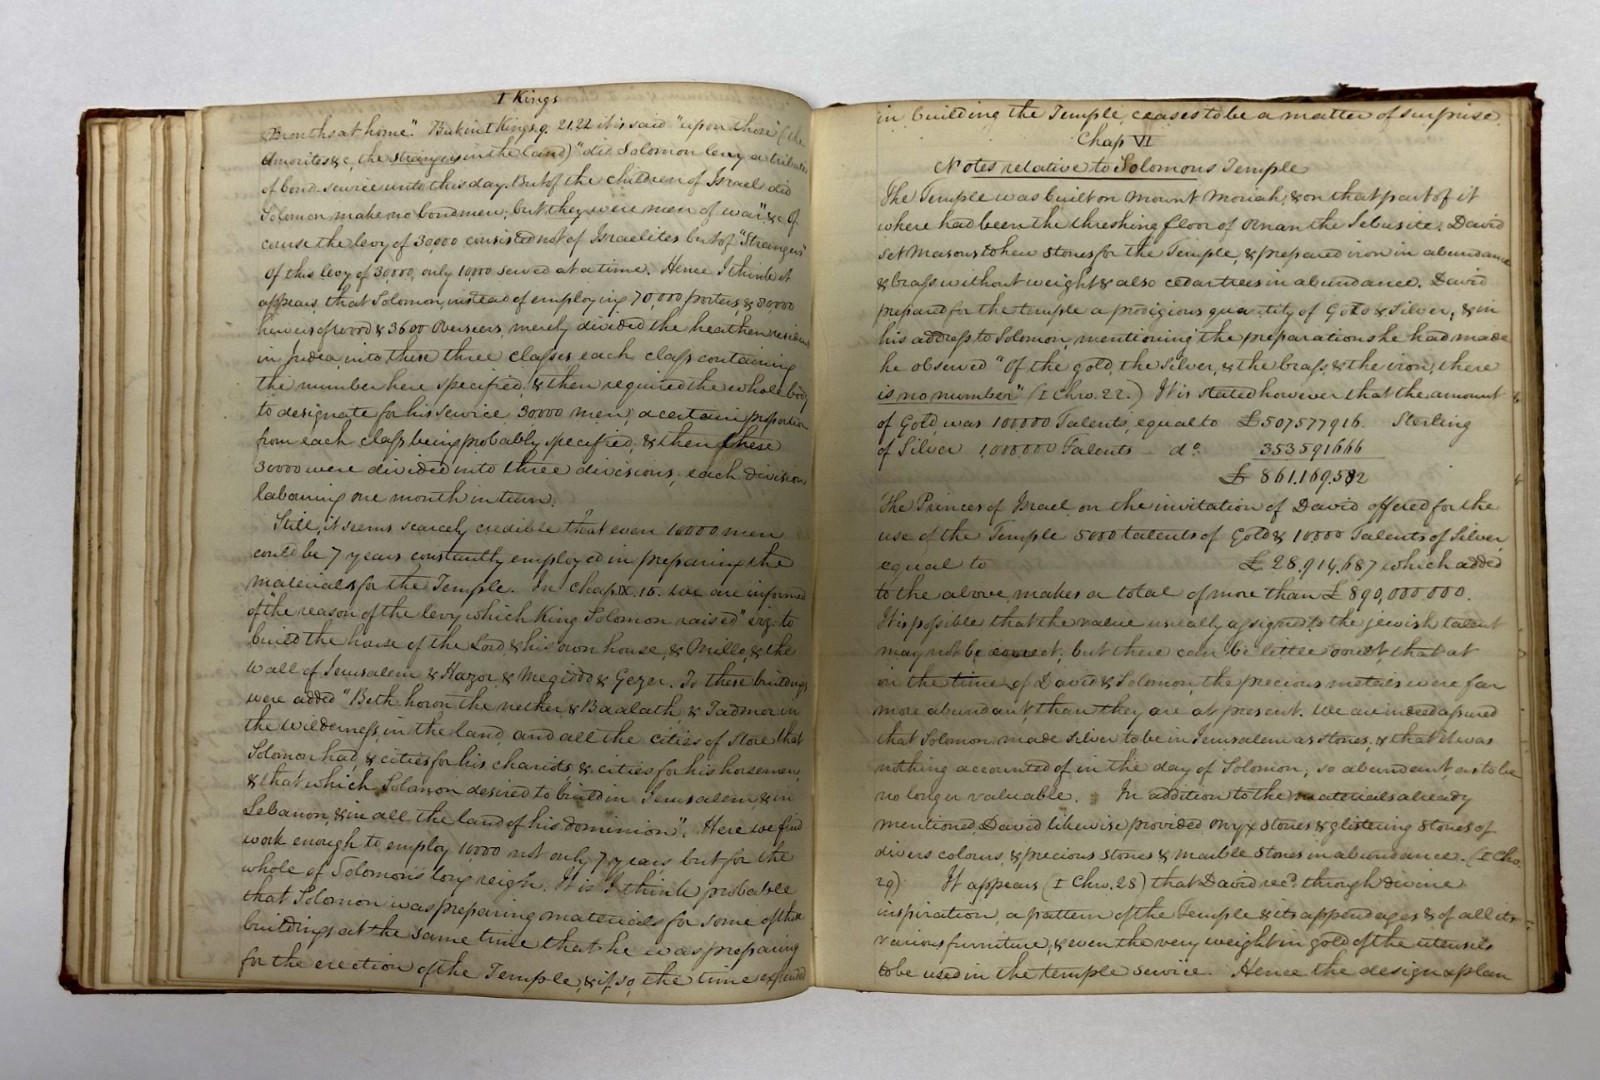 I Kings
& 2 months at home". But in I Kings 9. 21.22 it is said "upon those" (the
Amorites &c, the strangers in the land) "did Solomon levy a tribute
of bond-service unto this day. But of the children of Israel did
Solomon make no bondmen, but they were men of war" &c Of
course the levy of 30,000 consisted not of Israelites but of "Strangers"
Of this levy of 30,000, only 10,000 served at a time. Hence I think it
appears, that Solomon, instead of employing 70,000 porters, & 80,000
hewers of wood & 3600 Overseers, merely divided the heathen resident
in Judea, into these three classes, each class containing
the number here specified, & then required the whole body
to designate for his service 30000 men, a certain proportion
from each class being probably specified; & then these
30000 were divided into three divisions, each division
labouring one month in turn.
Still, it seems scarcely credible that even 10000 men
could be 7 years constantly employed in preparing the
materials for the Temple. In chap IX. 15. we are informed
of "the reason of the levy which King Solomon raised" viz: to
build the house of the Lord, & his own house, & Millo, & the
wall of Jerusalem & Hazor, & Megiddo & Gezer. To these buildings
were added "Beth horon the nether & Baalath, & Tadmor in
the wilderness, in the land, and all the cities of store that
Solomon had, & cities for his chariots & cities for his horsemen,
& that which Solomon desired to build in Jerusalem & in
Lebanon, & in all the land of his dominion". Here we find
work enough to employ 10,000 not only 7 years but for the
whole of Solomon's long reign. It is I think probable
that Solomon was preparing materials for some of these
buildings at the same time that he was preparing
for the erection of the Temple, & if so, the time expended
in building the Temple, ceases to be a matter of surprise.
Chap VI
Notes relative to Solomons Temple
The Temple was built on Mount Moriah, & on that part of it
where had been the threshing floor of Ornan the Jebusite. David
set Masons to hew stones for the Temple, & prepared iron in abundance
& brass without weight & also cedar trees in abundance. David
prepared for the temple a prodigious quantity of Gold & Silver; & in
his address to Solomon, mentioning the preparations he had made
he observed "Of the gold, the Silver, & the brass, & the iron, there
is no number" (I Chro. 22.) It is stated however that the amount
of Gold was 100000 Talents, equal to £507,577,916. Sterling
of Silver 1,000000 Talents - do. 353591666
£ 861.169.582
The Princes of Israel on the invitation of David offered for the
use of the Temple 5000 talents of Gold & 10000 Talents of Silver,
equal to £28,914,687 which added
to the above, makes a total of more than £890,000,000.
It is possible that the value usually assigned to the jewish talent
may not be correct; but there can be little doubt, that at
in the time of David & Solomon, the precious metals were far
more abundant, than they are at present. We are indeed assured
that Solomon made silver to be in Jerusalem as stones, & that it was
nothing accounted of in the day of Solomon; so abundant, as to be
no longer valuable. In addition to the materials already
mentioned, David likewise provided onyx stones & glistening stones of
divers colours, & precious stones & marble stones in abundance. (I Chro.
29) It appears (I Chro. 28) that David recd. through divine
inspiration, a pattern of the Temple & its appendages & of all its
various furniture, & even the very weight in gold of the utensils
to be used in the temple service. Hence the design & plan